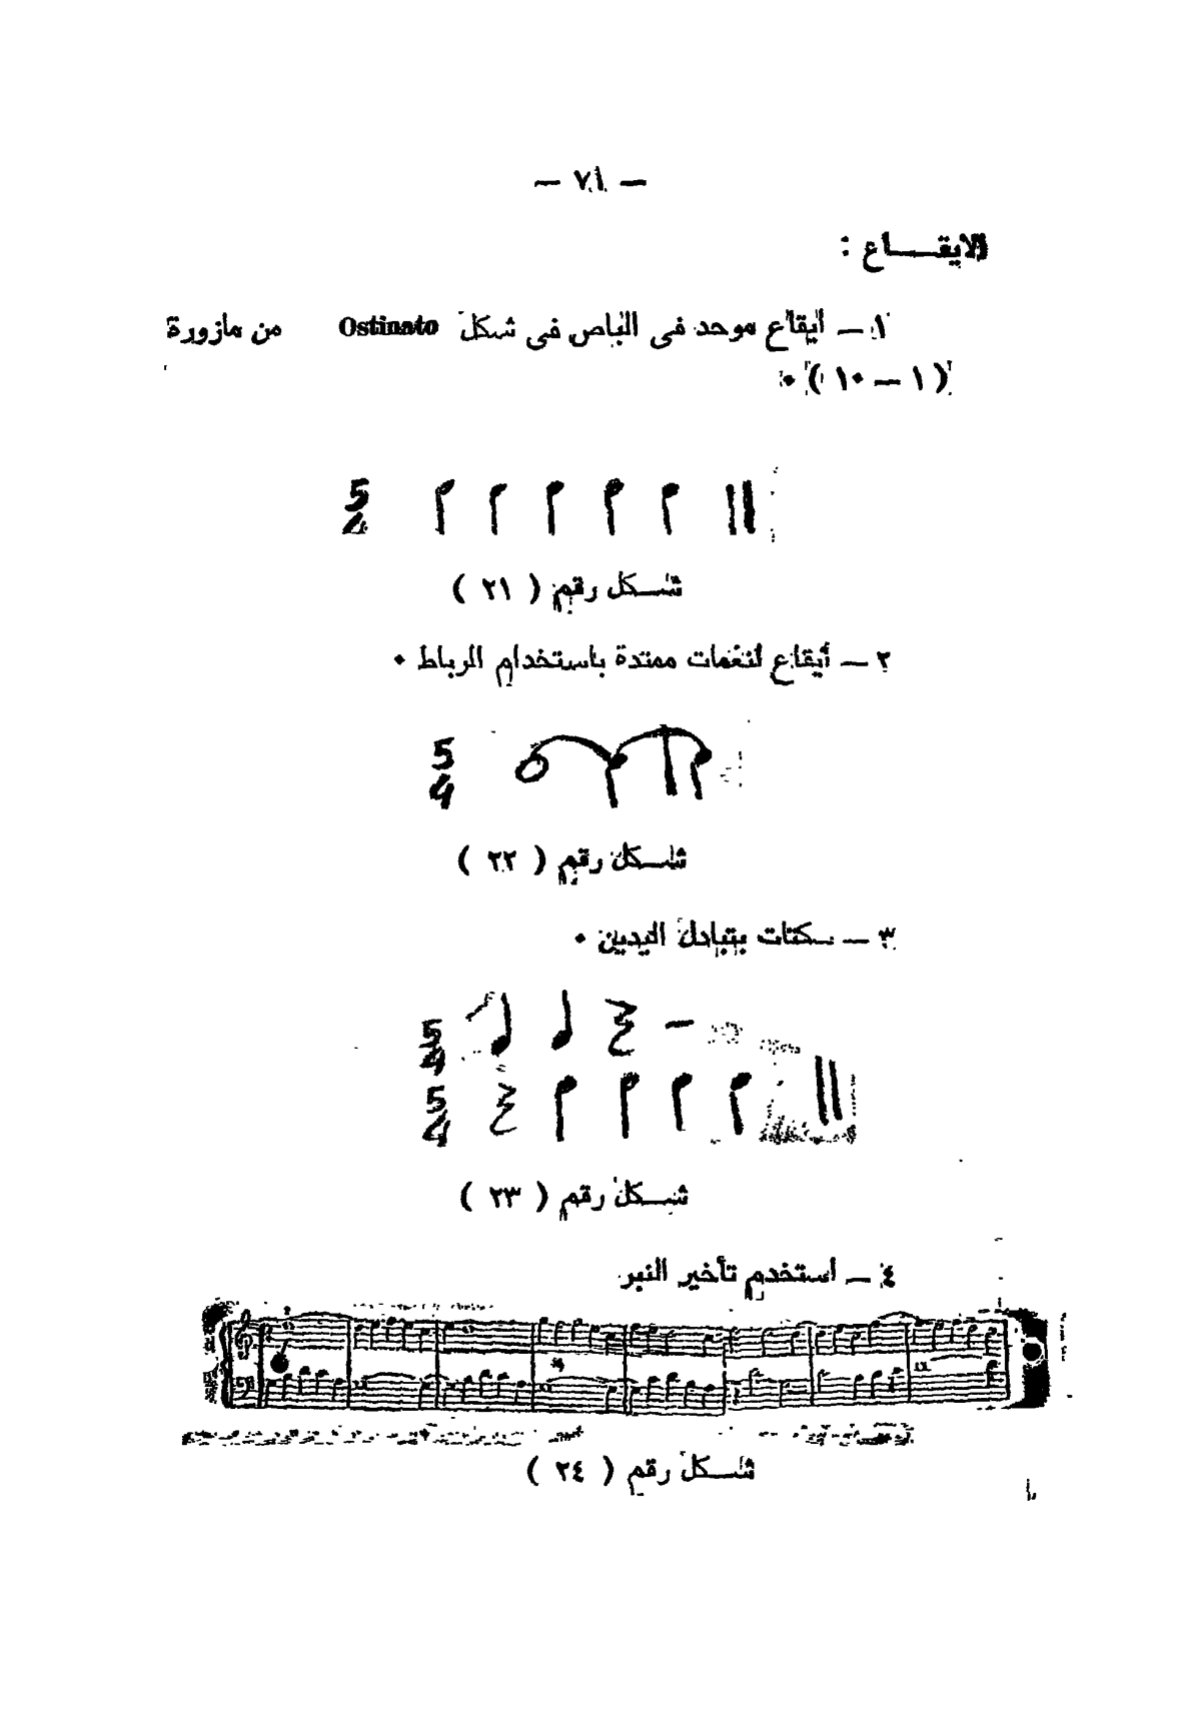 — ٧١ —
الايقـــاع :
١ — أيقاع موحد فى الباص فى شكل Ostinato من مازورة
( ١ — ١٠ ) ٠
5
4
شـكل رقم ( ٢١ )
٢ — أيقاع لنغمات ممتدة باستخدام الرباط ٠
5
4
شـكل رقم ( ٢٢ )
٣ — سكتات بتبادل اليدين ٠
5
4
5
4
شـكل رقم ( ٢٣ )
٤ — استخدم تأخير النبر
شـكل رقم ( ٢٤ )